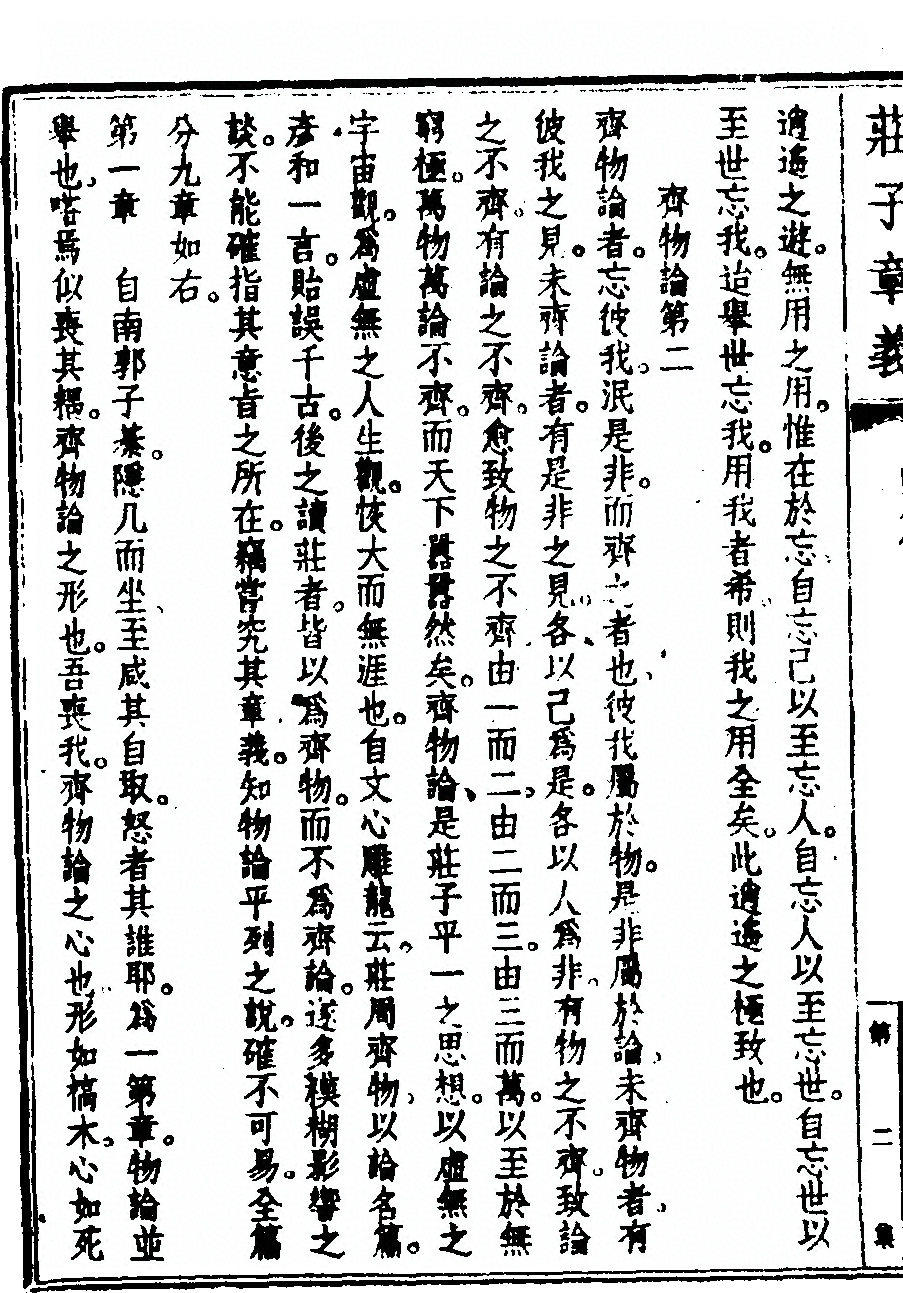 莊子章義
第二集
逍遙之遊。無用之用。惟在於忘。自忘己以至忘人。自忘人以至忘世。自忘世以
至世忘我。迨舉世忘我。用我者希、則我之用全矣。此逍遙之極致也。
齊物論第二
齊物論者。忘彼我。泯是非。而齊之者也、彼我屬於物。是非屬於論、未齊物者、有
彼我之見。未齊論者。有是非之見、各、以己爲是。各以人爲非、有物之不齊。致論
之不齊。有論之不齊。愈致物之不齊由一而二。由二而三。由三而萬。以至於無
窮極。萬物萬論不齊。而天下囂囂然矣。齊物論、是莊子平一之思想。以虛無之
宇宙觀。爲虛無之人生觀。恢大而無涯也。自文心雕龍云。莊周齊物、以論名篇。
彥和一言。貽誤千古。後之讀莊者。皆以爲齊物。而不爲齊論。遂多模糊影響之
談。不能確指其意旨之所在。竊嘗究其章義。知物論平列之說。確不可易。全篇
分九章如右。
第一章　自南郭子綦。隱几而坐、至咸其自取。怒者其誰耶。爲一第章。物論並
舉也。嗒焉似喪其耦。齊物論之形也。吾喪我。齊物論之心也。形如槁木。心如死